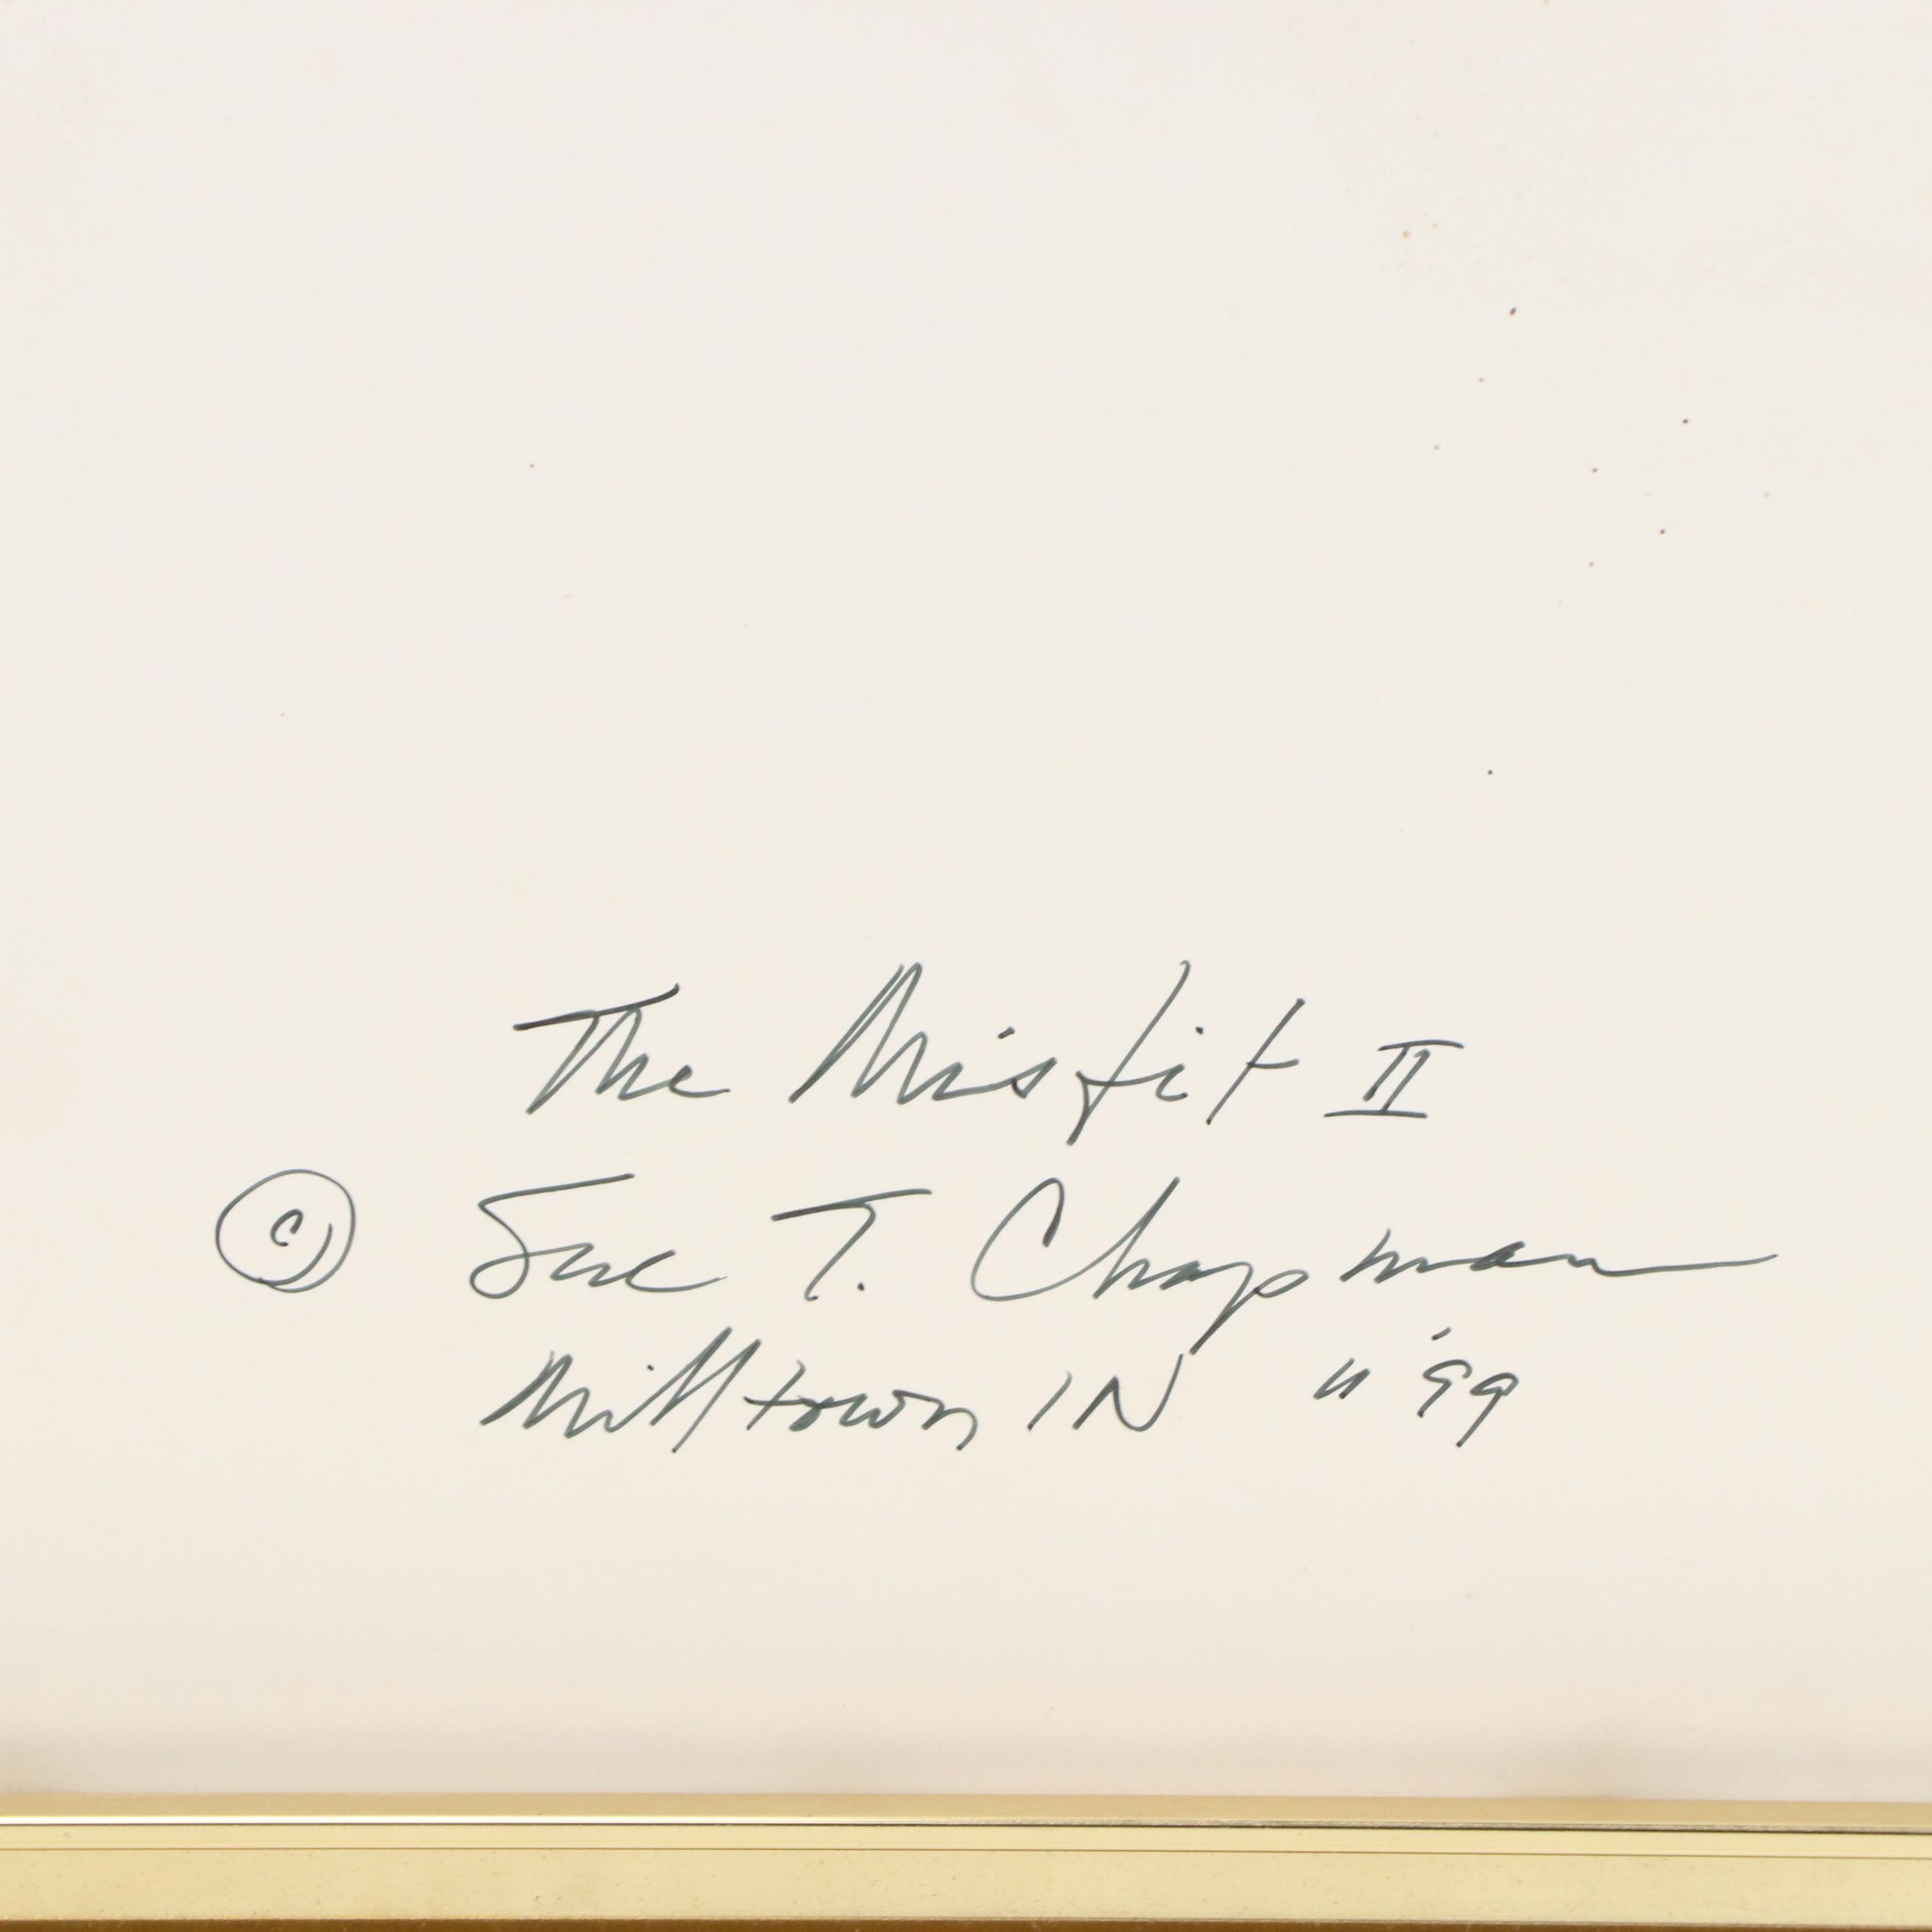 The Misfit II
© Sue T. Chapman
Milltown IN 11 '99